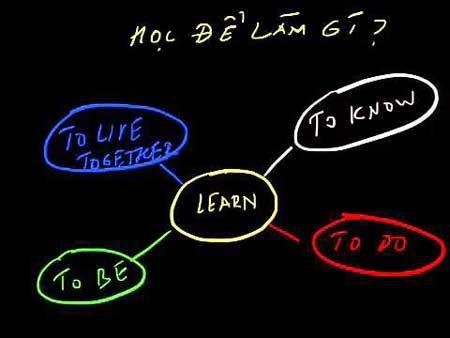 HỌC ĐỂ LÀM GÌ?
TO LIVE
TOGETHER
TO KNOW
LEARN
TO BE
TO DO